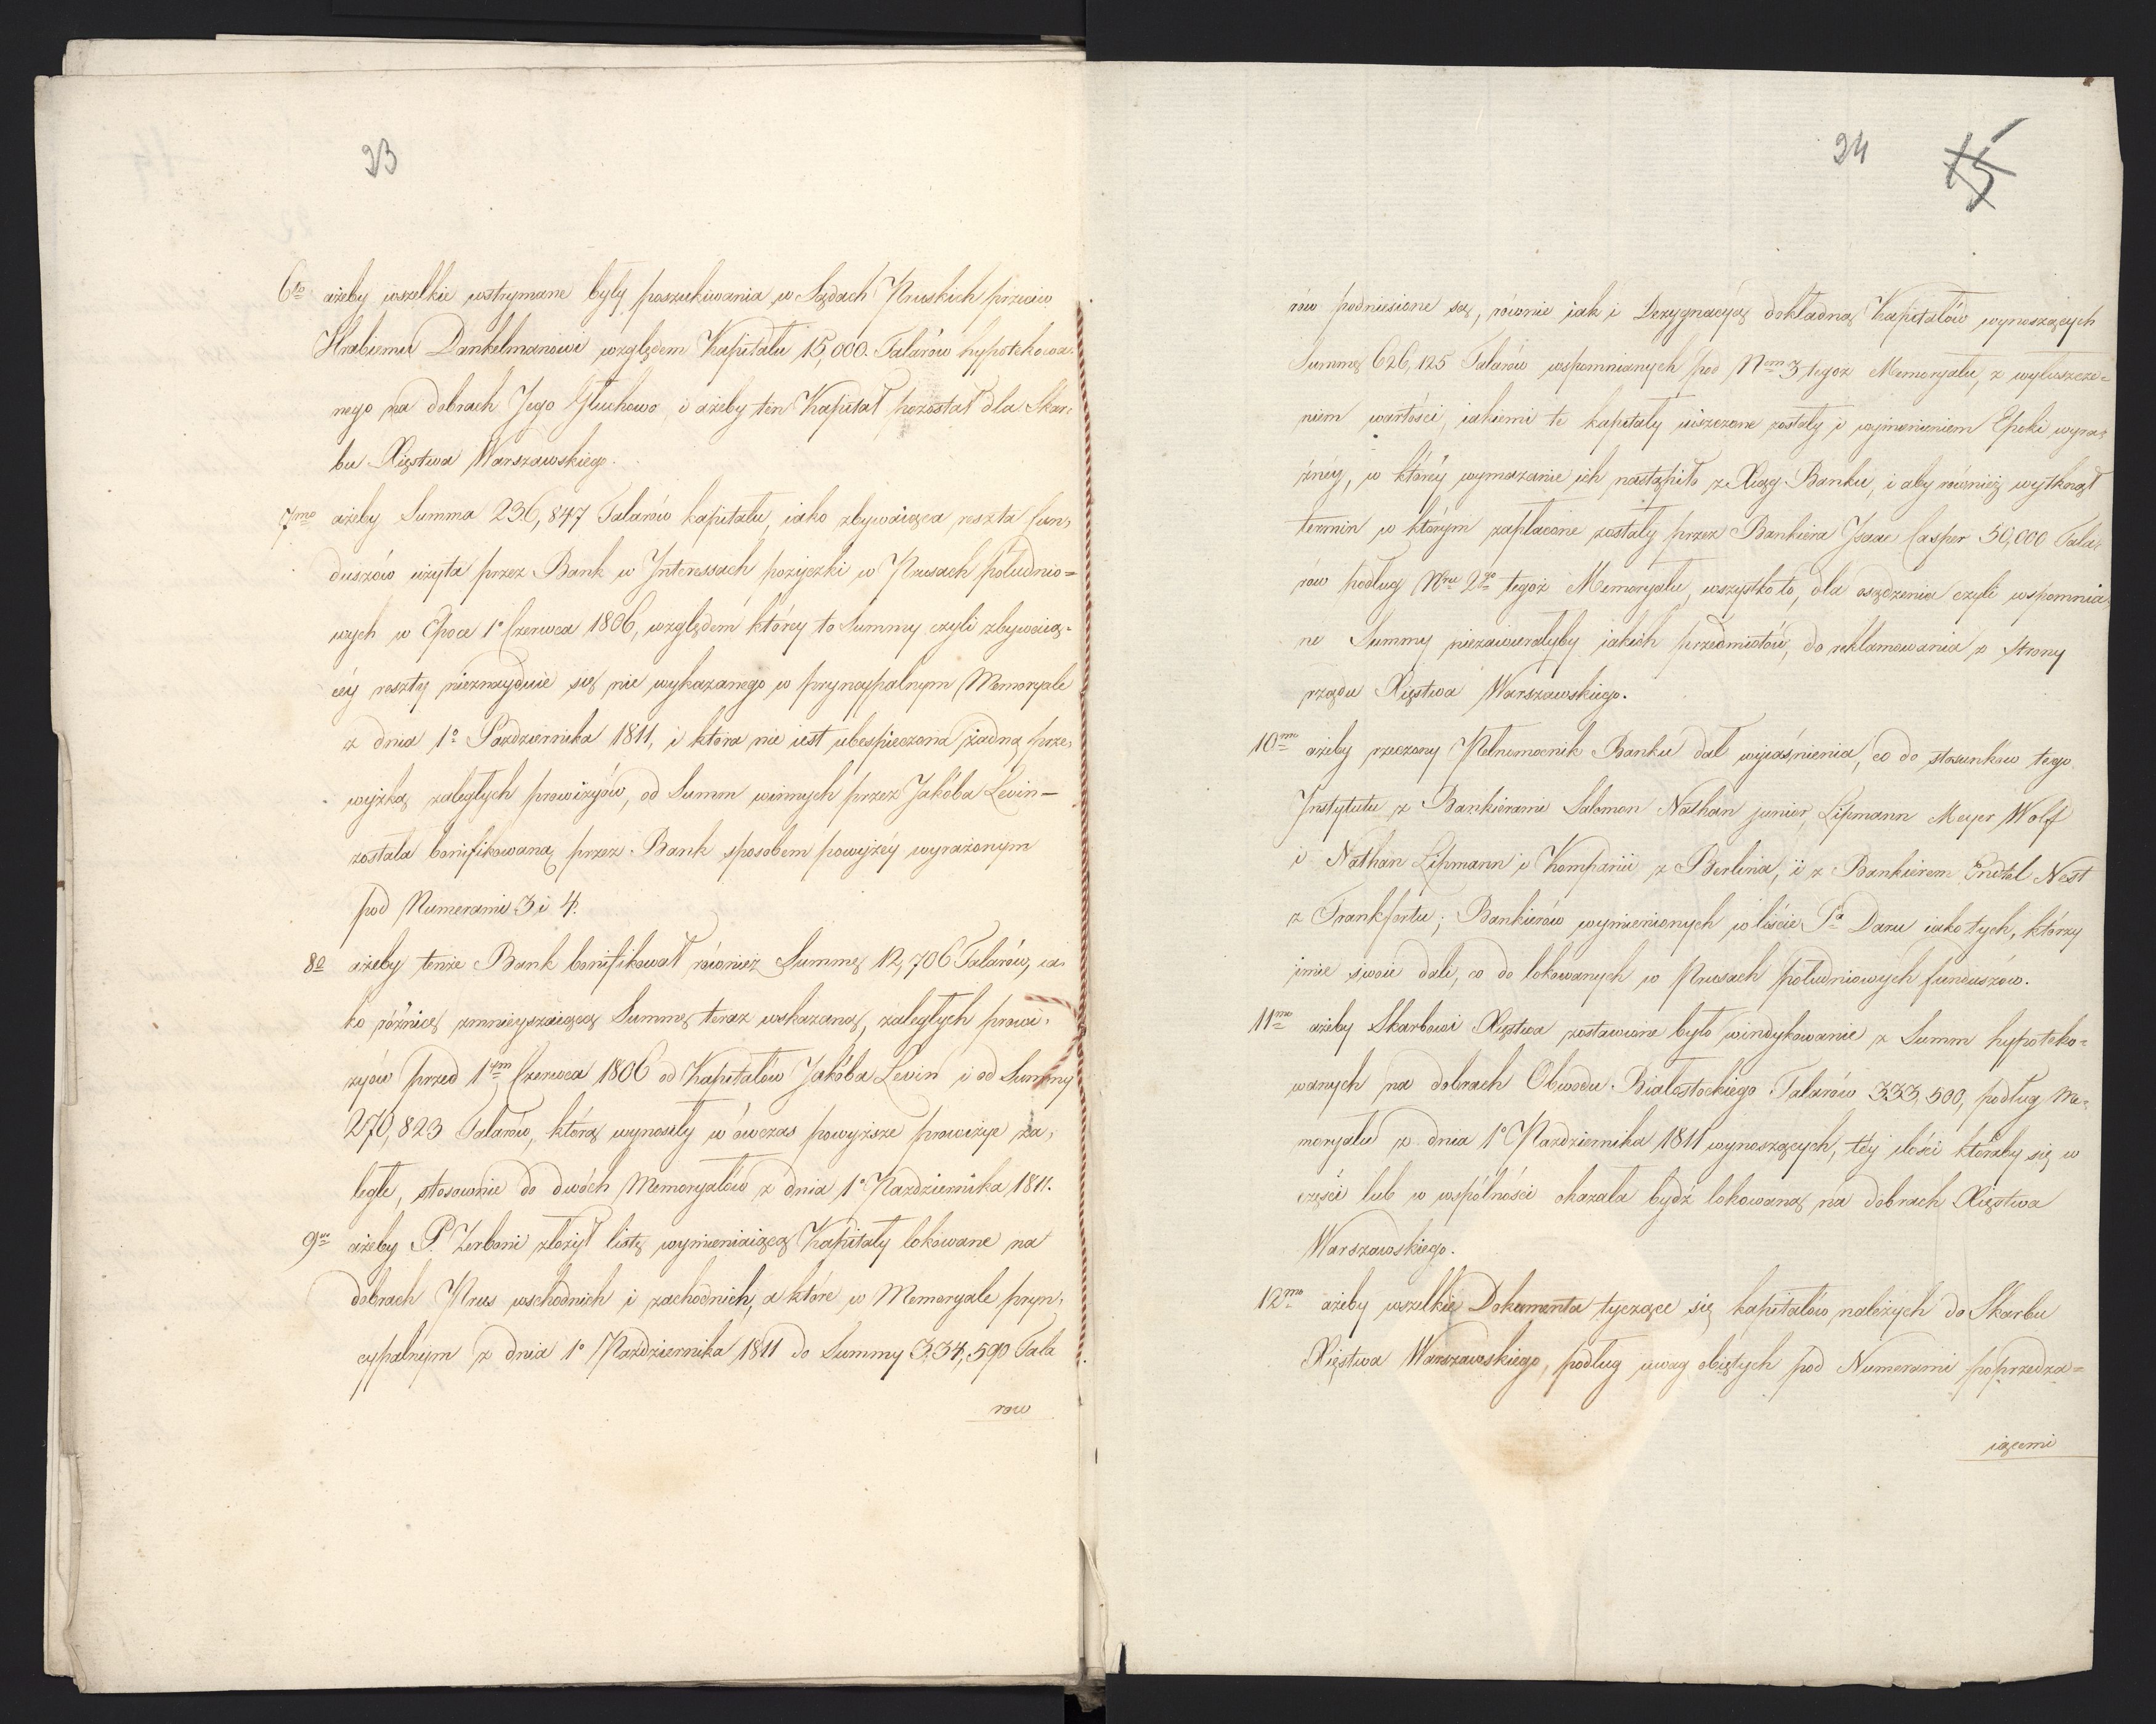 23
6to ażeby wszelkie wstrzymane były poszukiwania w Sądach Pruskich przeciw
Hrabiemu Dankelmanowi względem Kapitału 15,000. Talarów hypotekowa-
nego na dobrach Jego Głuchowo i ażeby ten Kapitał pozostał dla Skar-
bu Xięstwa Warszawskiego.
7mo ażeby Summa 236,847 Talarów kapitału, iako zbywaiąca reszta fun-
duszów użyta przez Bank w Interessach pożyczki w Prusach południo=
wych w Epoca 1o Czerwca 1806, względem którey to Summy czyli zbywaią-
céy reszty nieznayduie się nic wykazanego w pryncypalnym Memoryale
z dnia 1o Pazdziernika 1811, i która nie iest ubespieczona żadną prze-
wyżką zaległych prowizyów, od Summ winnych przez Jakóba Levin -
została bonifikowaną przez Bank sposobem powyżéy wyrażonym
pod Numerami 3 i 4.
8o ażeby tenże Bank bonifikował również Summę 12,706 Talarów, ia-
ko różnicę zmnieyszaiącą Summę teraz wskazaną, zaległych prowi-
zyów przed 1ym Czerwca 1806 od Kapitałów Jakóba Levin i od Summy
270,823 Talarów, którą wynosiły w ówczas powyższe prowizye za-
ległe, stosownie do dwóch Memoryałów z dnia 1o Pazdziernika 1811.
9no ażeby P. Zerboni złożył listę wymieniaiącą Kapitały lokowane na
dobrach Prus wschodnich i zachodnich, a które w Memoryale pryn-
cypalnym z dnia 1o Pazdziernika 1811 do Summy 334,590 Tala
row
24
15
rów podniesione są, równie iak i Dezygnacyą dokładną Kapitałów wynoszących
Summę 626,125 Talarów wspomnianych pod Nem 3 tegoż Memoryału, z wyłuszcze=
niem wartości, iakiemi te kapitały uiszczone zostały i wymienieniem Epoki wyra-
źnéy, w którey wymazanie ich nastąpiło z Xiąg Banku, i aby również wytknął
termin w którym zapłacone zostały przez Bankiera Isaac Casper 50,000 Tala-
rów podług Nru 2go tegoż Memoryału, wszystko to, dla osądzenia czyli wspomnia-
ne Summy niezawierałyby iakich przedmiotów, do reklamowania z strony
rządu Xięstwa Warszawskiego.
10mo ażeby rzeczony Pełnomocnik Banku dał wyiaśnienia, co do stosunków tego
Instytutu z Bankierami Salomon Nathan junior, Lipmann Meyer Wolf
i Nathan Lipmann i Kompanii z Berlina, i z Bankierem Nest
z Frankfortu; Bankierów wymienionych w liście Pa Daru iako tych, którzy
imie swoie dali, co do lokowanych w Prusach południowych funduszów.
11mo ażeby Skarbowi Xięstwa zostawione było windykowanie z Summ hypoteko=
wanych na dobrach Obwodu Białostockiego Talarów 333,500, podług Me-
moryału z dnia 1o Pazdziernika 1811 wynoszących, téy ilości któraby się w
części lub w wspólności okazała bydź lokowaną na dobrach Xięstwa
Warszawskiego.
12mo ażeby wszelkie Dokumenta tyczące się kapitałów należych do Skarbu
Xięstwa Warszawskiego, podług uwag obiętych pod Numerami poprzedza=
iącemi